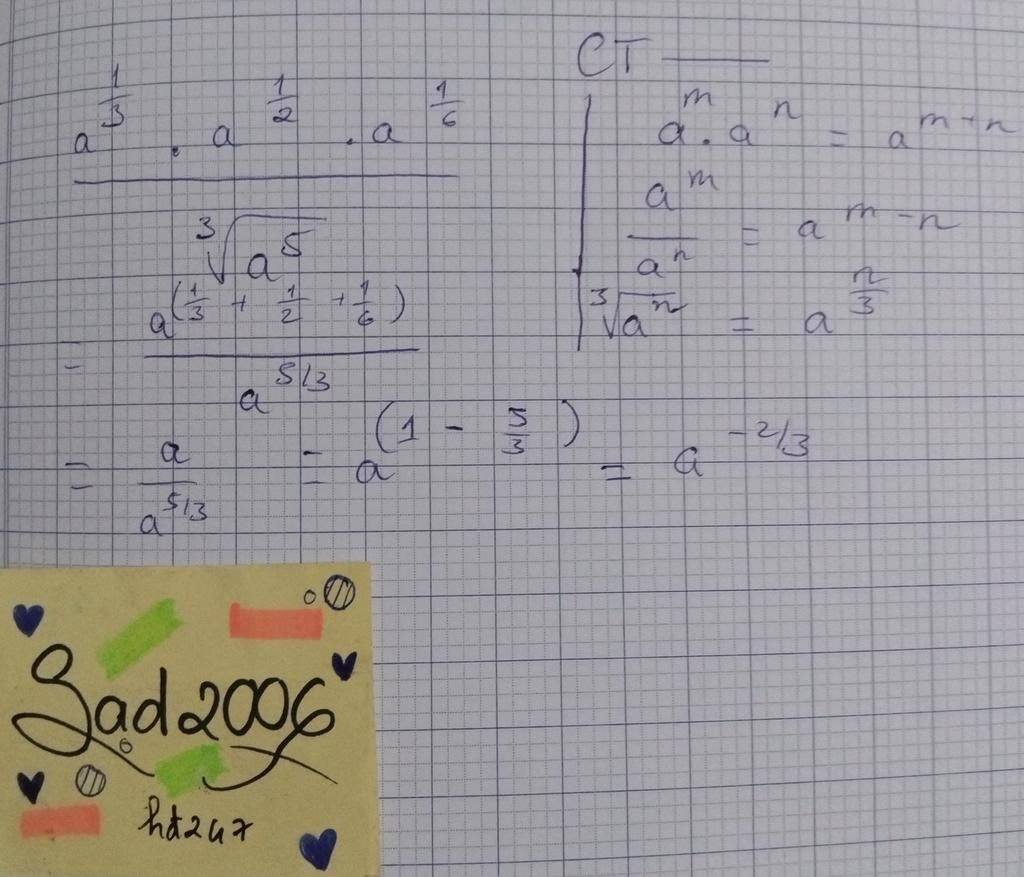 a^(1/3) . a^(1/2) . a^(1/6)
―――――――――
∛(a^5)
= a^(1/3 + 1/2 + 1/6)
―――――――――
a^(5/3)
= a / a^(5/3) = a^(1 - 5/3) = a^(-2/3)
CT
a^m . a^n = a^(m+n)
a^m / a^n = a^(m-n)
∛(a^n) = a^(n/3)
Sad2006
hd247